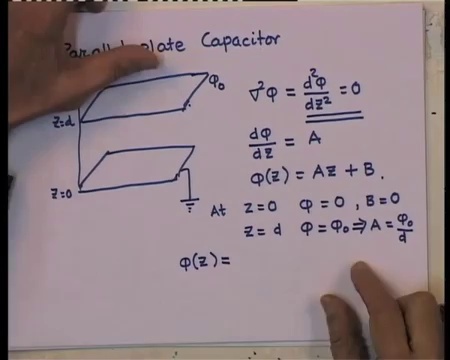 Parallel plate Capacitor
φ₀
z=d
z=0
∇²φ = d²φ/dz² = 0
dφ/dz = A
φ(z) = Az + B.
At z=0 φ=0 , B=0
z=d φ=φ₀ ⇒ A = φ₀/d
φ(z) =